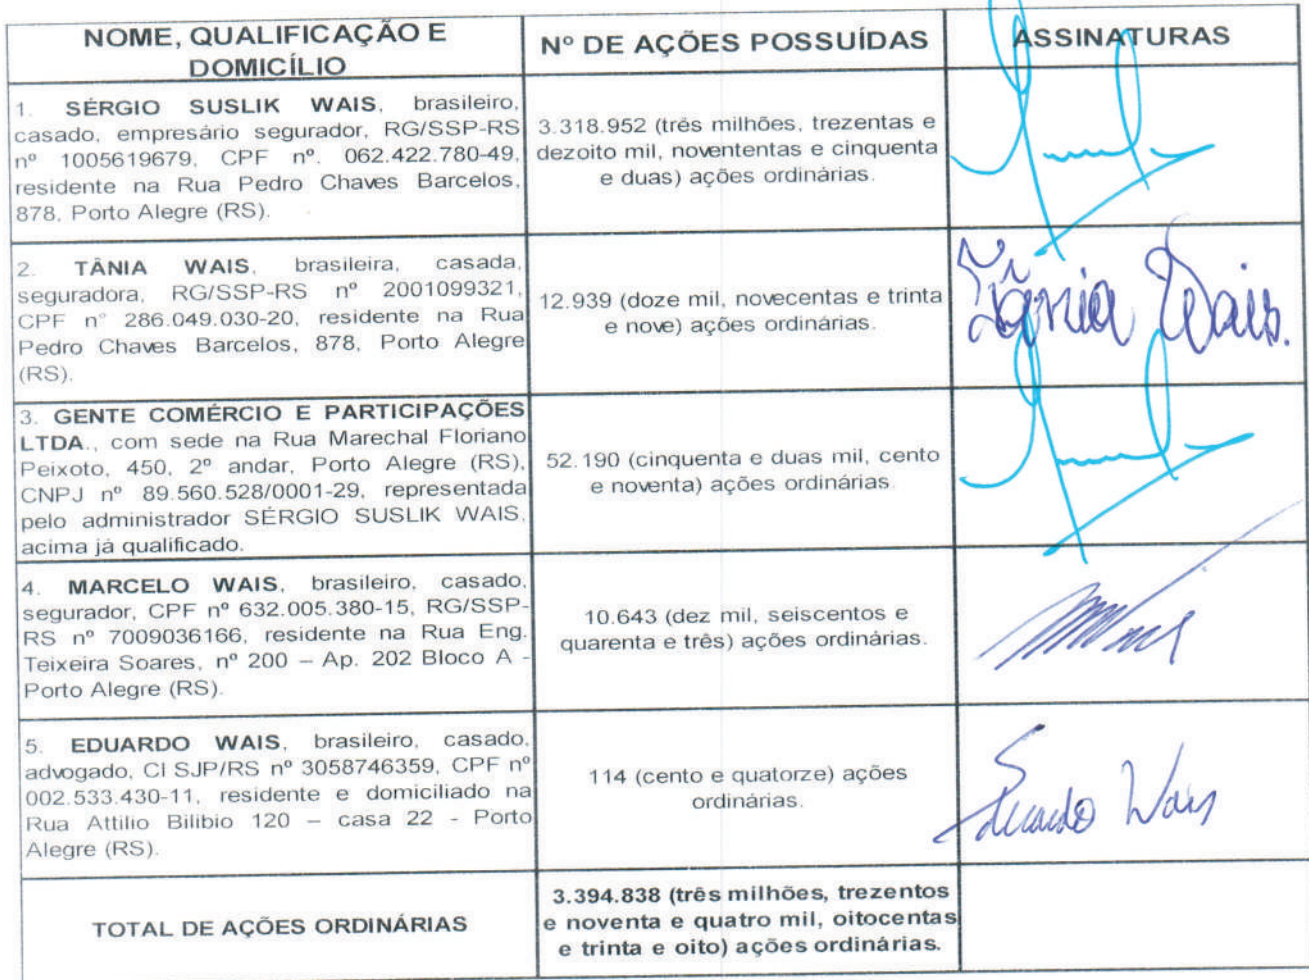 NOME, QUALIFICAÇÃO E
DOMICÍLIO
Nº DE AÇÕES POSSUÍDAS
ASSINATURAS
1. SÉRGIO SUSLIK WAIS, brasileiro,
casado, empresário segurador, RG/SSP-RS
nº 1005619679, CPF nº. 062.422.780-49,
residente na Rua Pedro Chaves Barcelos,
878, Porto Alegre (RS).
3.318.952 (três milhões, trezentas e
dezoito mil, novententas e cinquenta
e duas) ações ordinárias.
2. TÂNIA WAIS, brasileira, casada,
seguradora, RG/SSP-RS nº 2001099321,
CPF n° 286.049.030-20, residente na Rua
Pedro Chaves Barcelos, 878, Porto Alegre
(RS).
12.939 (doze mil, novecentas e trinta
e nove) ações ordinárias.
Tânia Wais.
3. GENTE COMÉRCIO E PARTICIPAÇÕES
LTDA., com sede na Rua Marechal Floriano
Peixoto, 450, 2º andar, Porto Alegre (RS),
CNPJ nº 89.560.528/0001-29, representada
pelo administrador SÉRGIO SUSLIK WAIS,
acima já qualificado.
52.190 (cinquenta e duas mil, cento
e noventa) ações ordinárias.
4. MARCELO WAIS, brasileiro, casado,
segurador, CPF nº 632.005.380-15, RG/SSP-
RS nº 7009036166, residente na Rua Eng.
Teixeira Soares, nº 200 – Ap. 202 Bloco A -
Porto Alegre (RS).
10.643 (dez mil, seiscentos e
quarenta e três) ações ordinárias.
5. EDUARDO WAIS, brasileiro, casado,
advogado, CI SJP/RS nº 3058746359, CPF nº
002.533.430-11, residente e domiciliado na
Rua Attilio Bilibio 120 – casa 22 - Porto
Alegre (RS).
114 (cento e quatorze) ações
ordinárias.
Eduardo Wais
TOTAL DE AÇÕES ORDINÁRIAS
3.394.838 (três milhões, trezentos
e noventa e quatro mil, oitocentas
e trinta e oito) ações ordinárias.